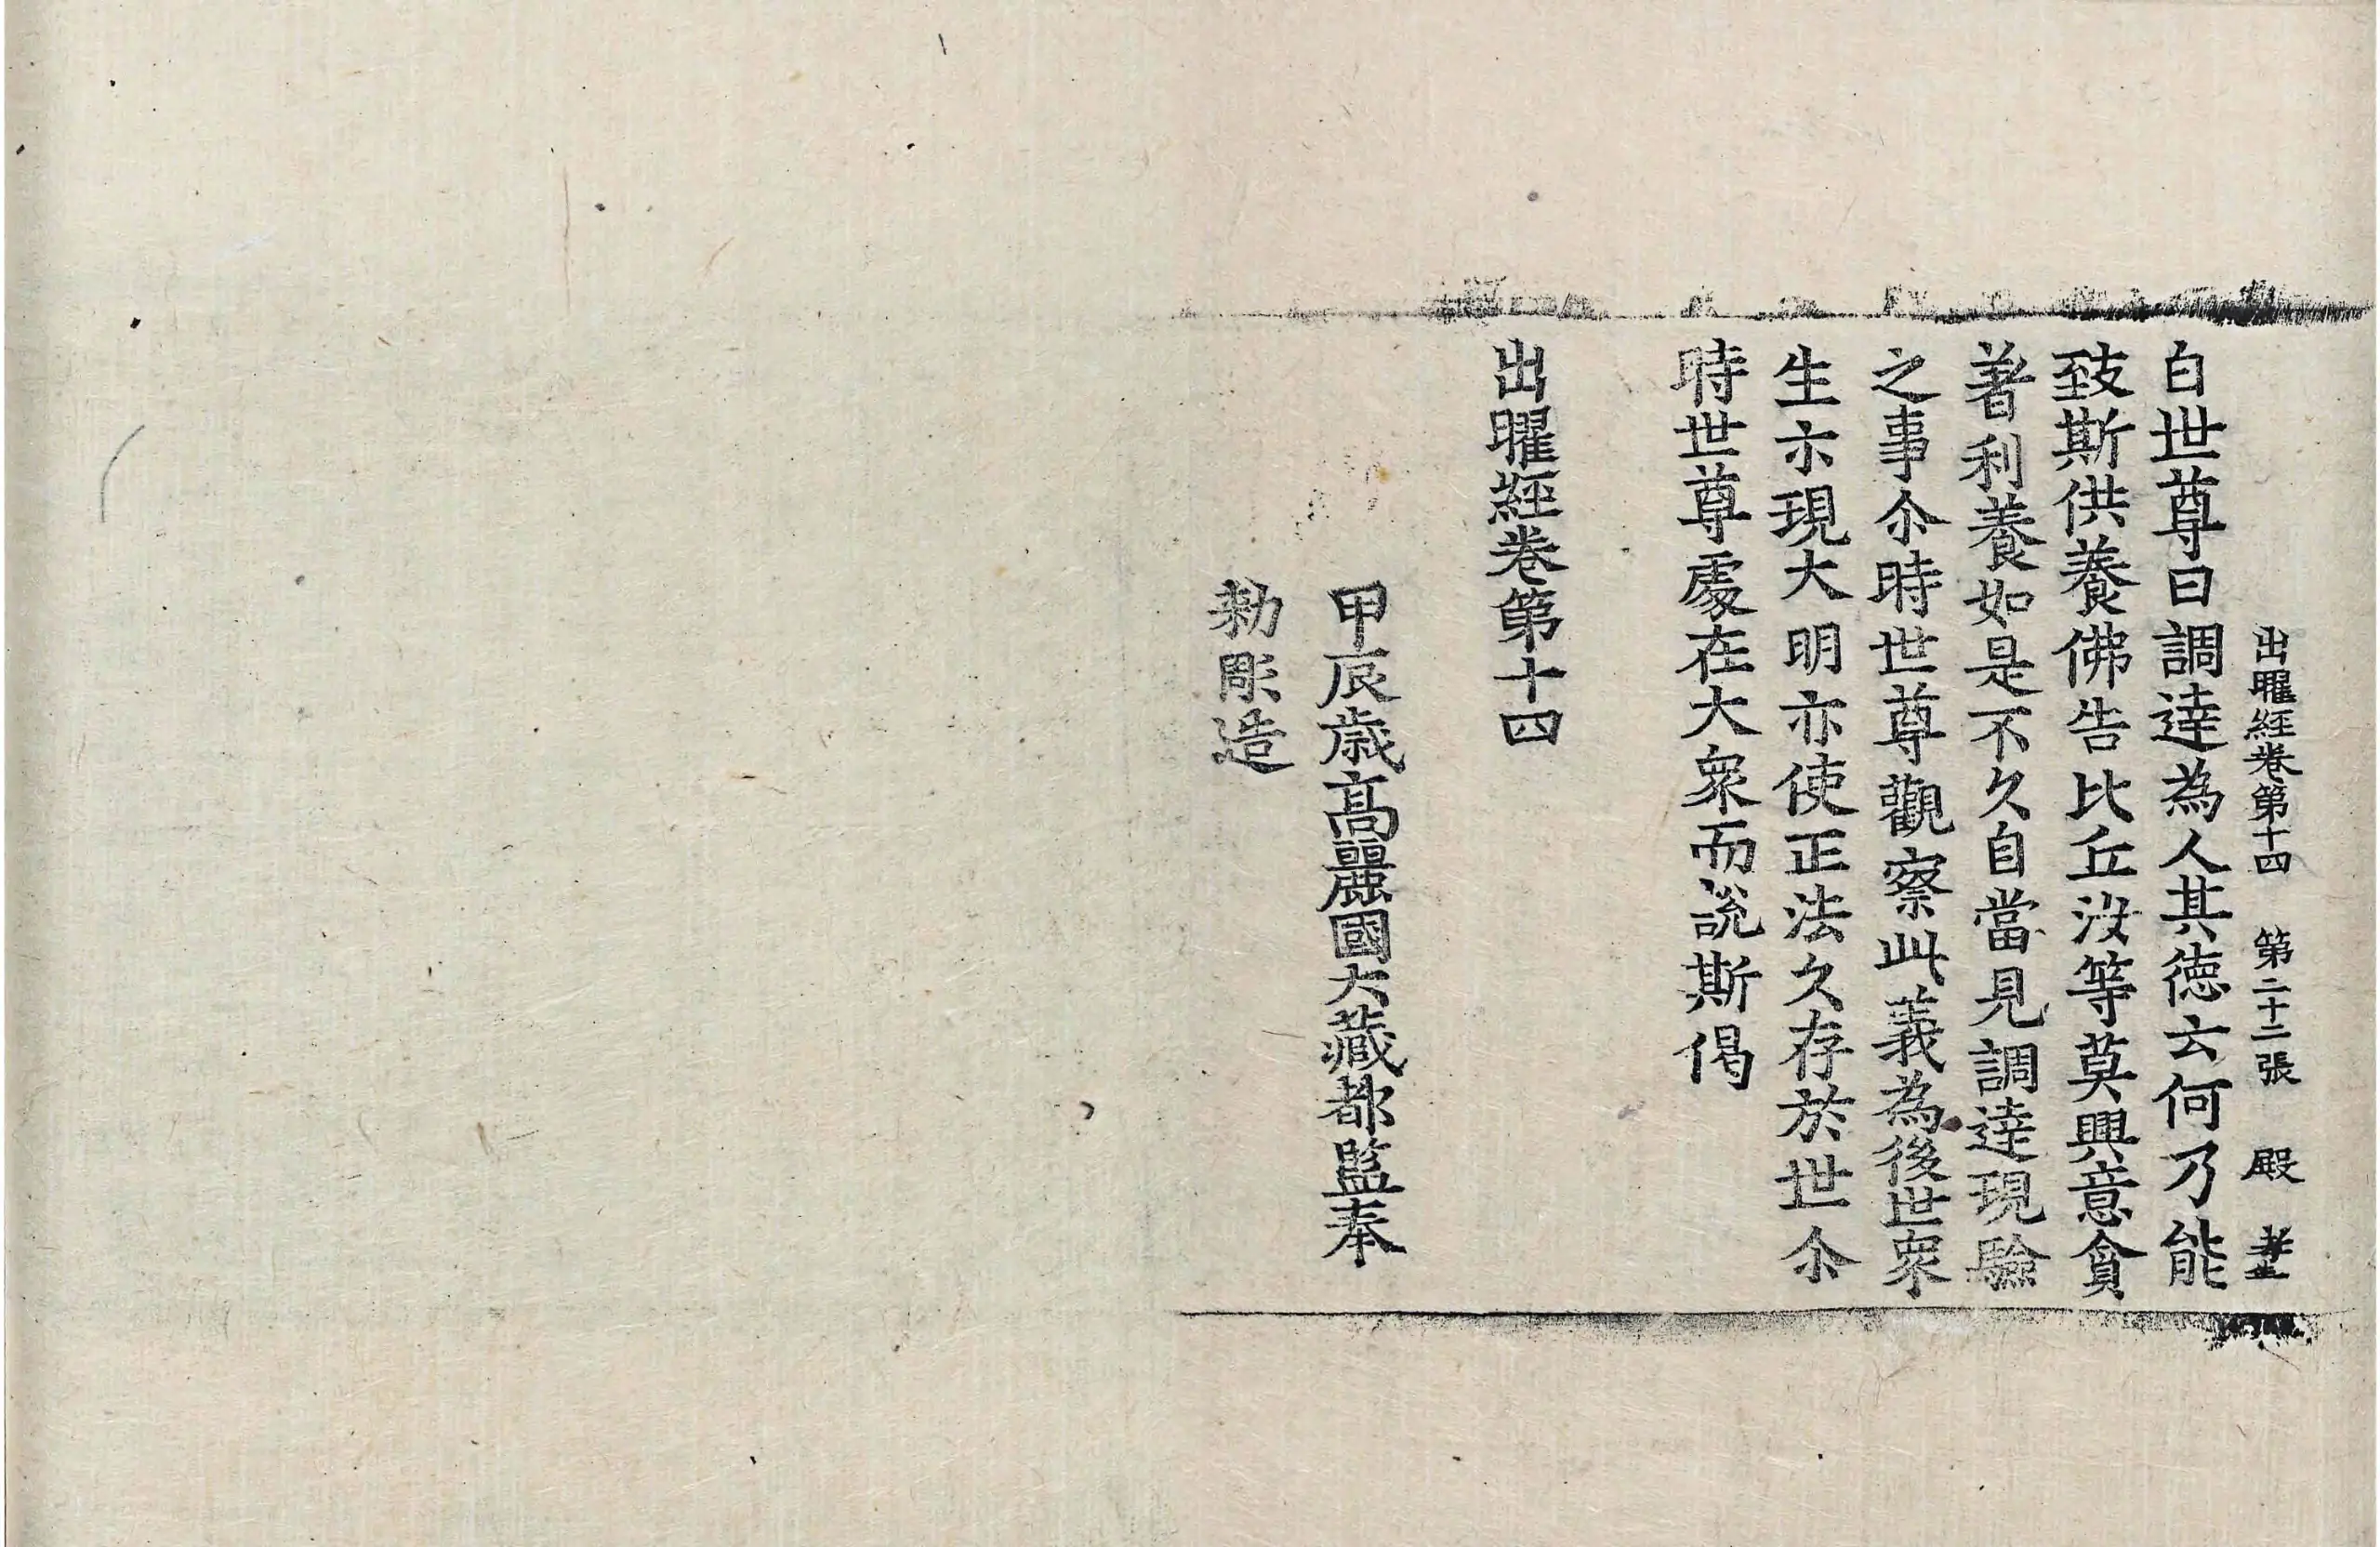 出曜經卷第十四 第二十二張 殿
白世尊曰調達為人其德云何乃能
致斯供養佛告比丘汝等莫興意貪
著利養如是不久自當見調達現驗
之事尒時世尊觀察此義為後世眾
生示現大明亦使正法久存於世尒
時世尊處在大眾而說斯偈
出曜經卷第十四
甲辰歲高麗國大藏都監奉
勑彫造